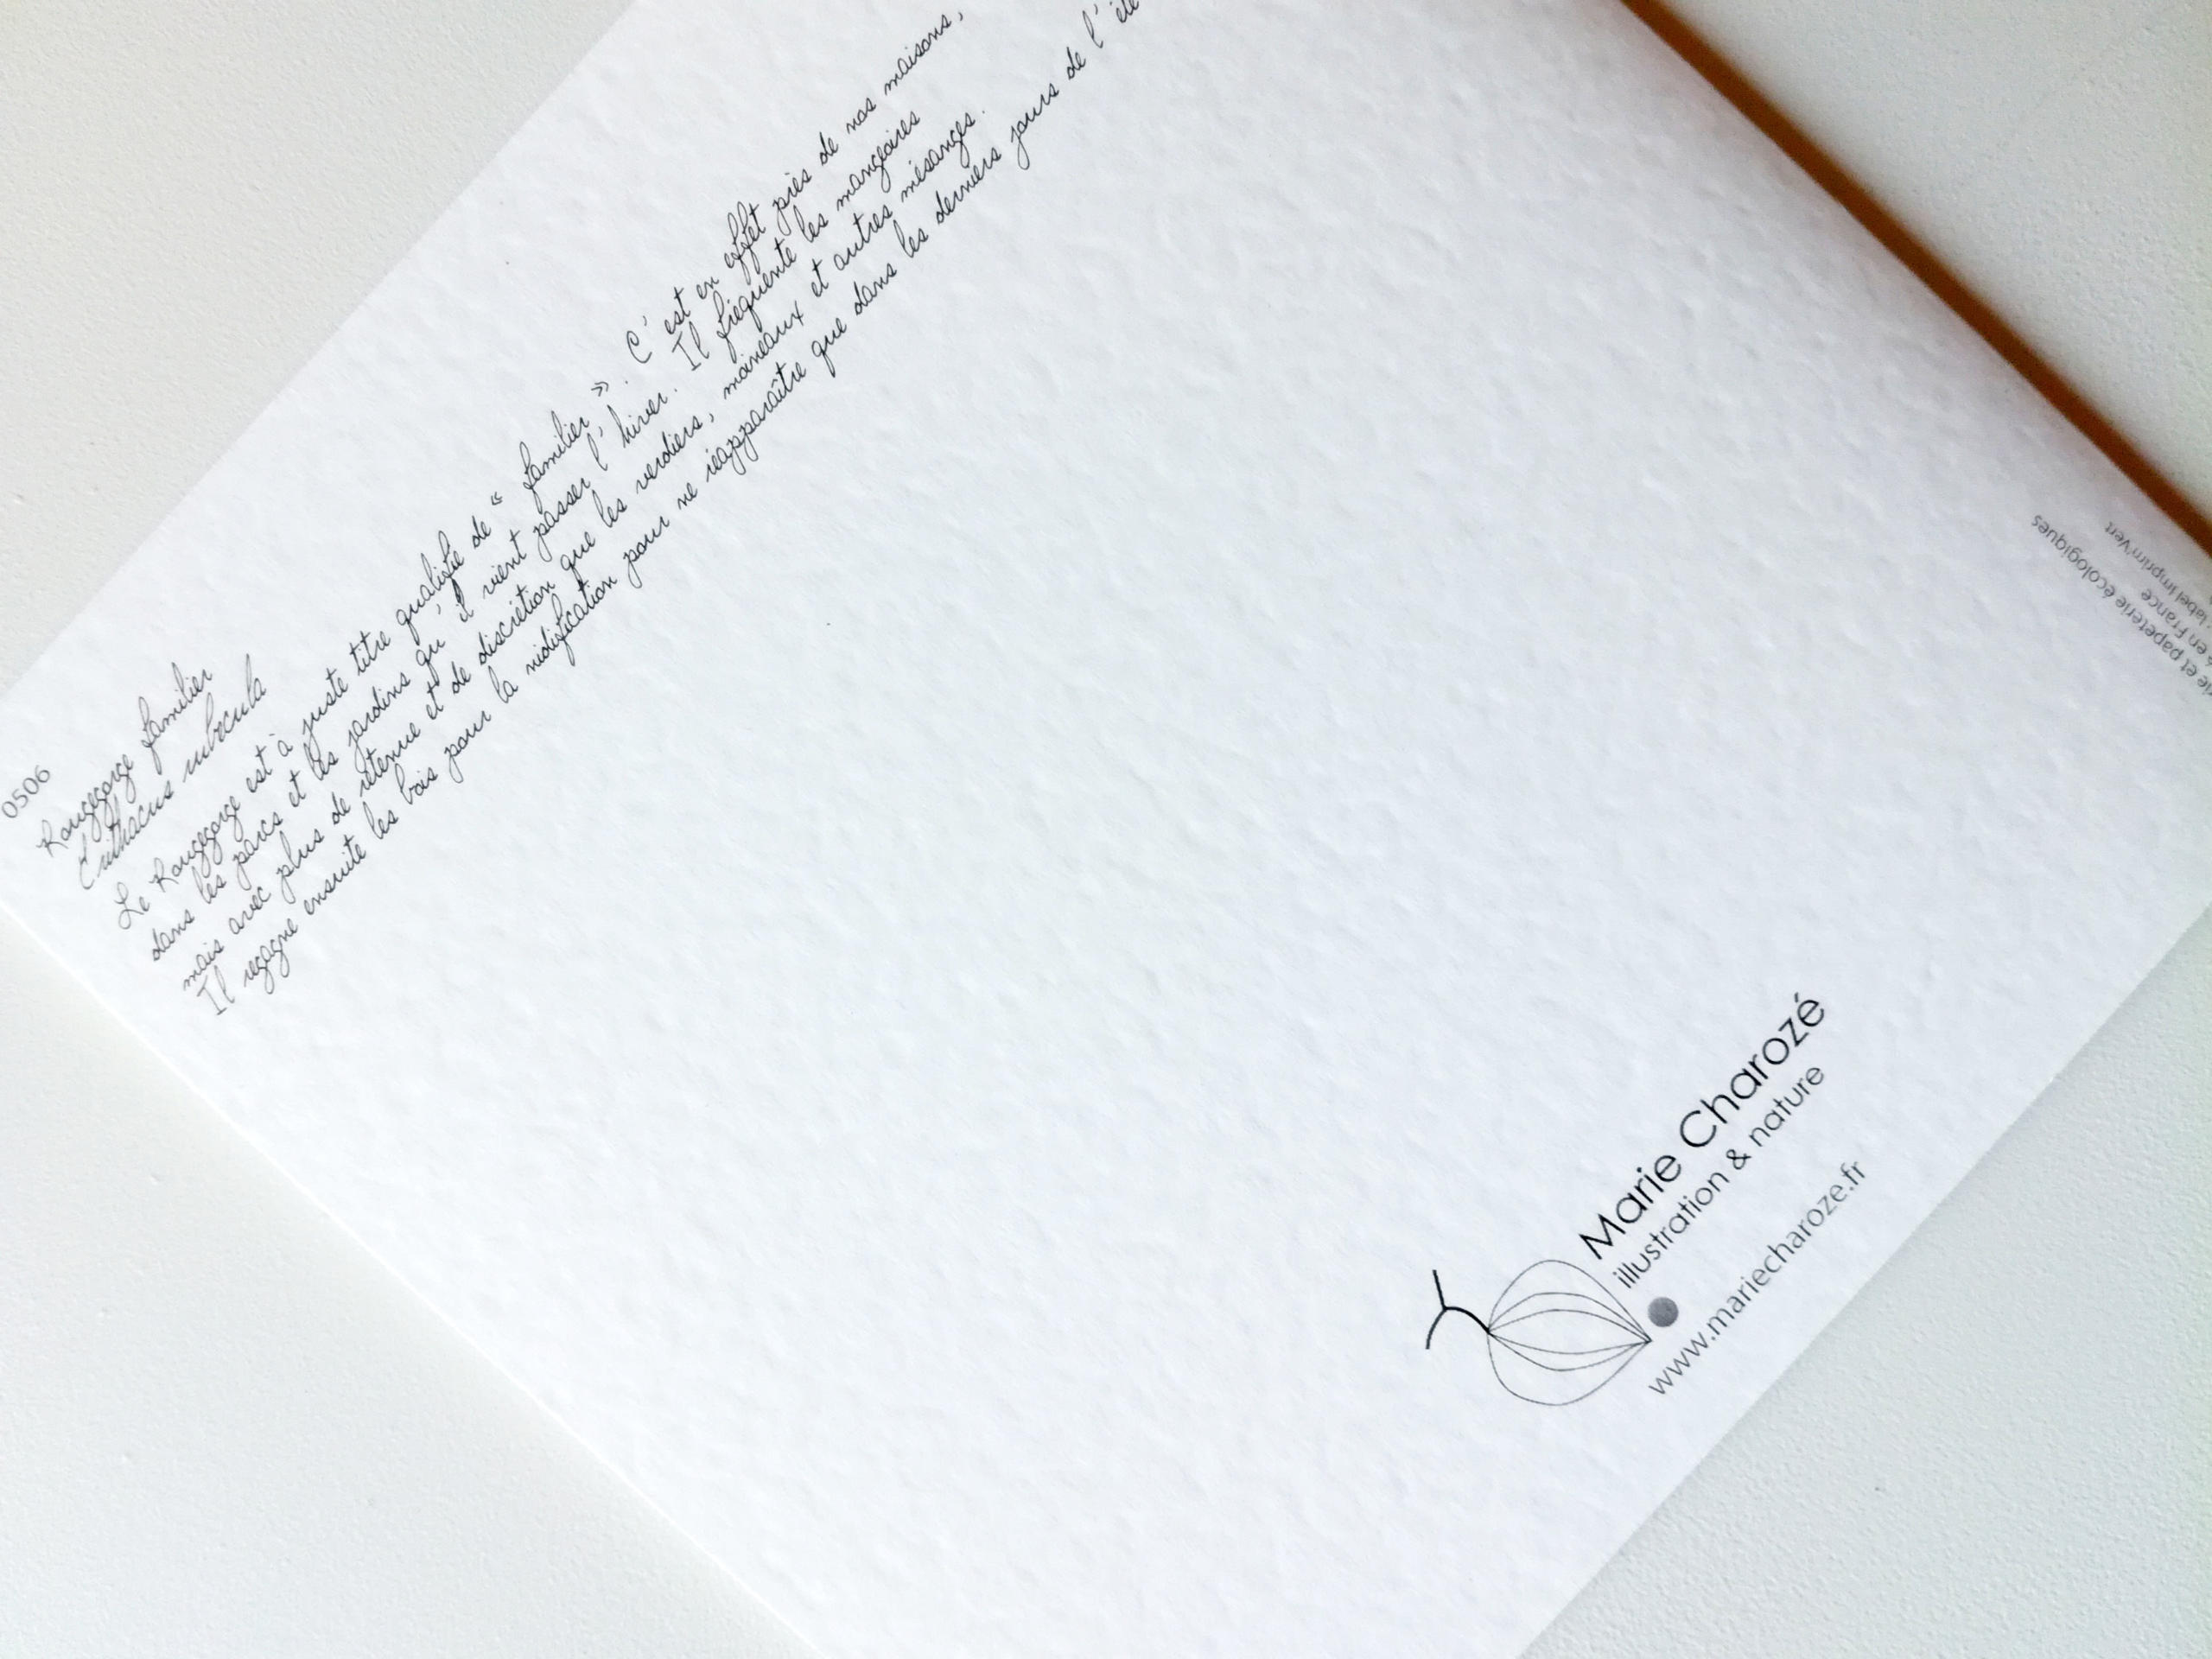 0506
Rougegorge familier
Erithacus rubecula
Le Rougegorge est à juste titre qualifié de “ familier ”. C’est en effet près de nos maisons,
dans les parcs et les jardins qu’il vient passer l’hiver. Il fréquente les mangeoires
mais avec plus de retenue et de discrétion que les verdiers, moineaux et autres mésanges.
Il regagne ensuite les bois pour la nidification pour ne réapparaître que dans les derniers jours de l’été
Marie Charozé
illustration & nature
www.mariecharoze.fr
et papeterie écologiques
en France
label Imprim'Vert